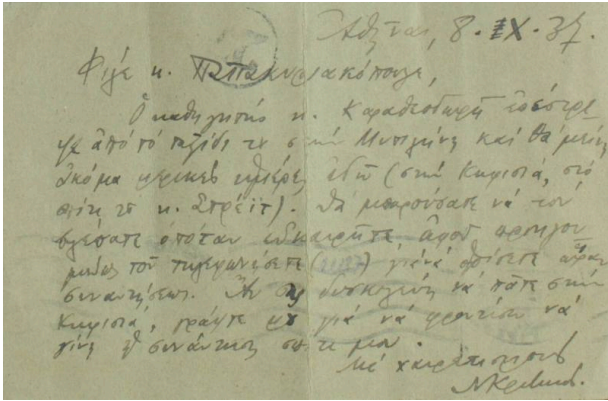 Ἀθῆναι, 8.IX.37.
Φίλε κ. Παπακυριακόπουλε,
Ὁ καθηγητής κ. Καραθεοδωρῆ ἐπέστρε
ψε ἀπό τό ταξίδι του στήν Μυτιλήνη καί θά μείνη
ἀκόμα μερικές ἡμέρες ἐδῶ (στήν Κηφισιά, στό
σπίτι τοῦ κ. Στρέϊτ). Θά μπορούσατε νά τόν
βλέπατε ὁπόταν εὐκαιρῆτε ἀφοῦ προηγου
μένως τοῦ τηλεφωνήσετε ( ) γιά νά ὁρίσετε ὥραν
συναντήσεως. Ἄν σᾶς δυσκολεύη νά πᾶτε στήν
Κηφισιά, γράψτε μου γιά νά φροντίσω νά
γίνη ἡ συνάντηση σπίτι μου.
Μέ χαιρετισμούς
ΝΚριτικός.